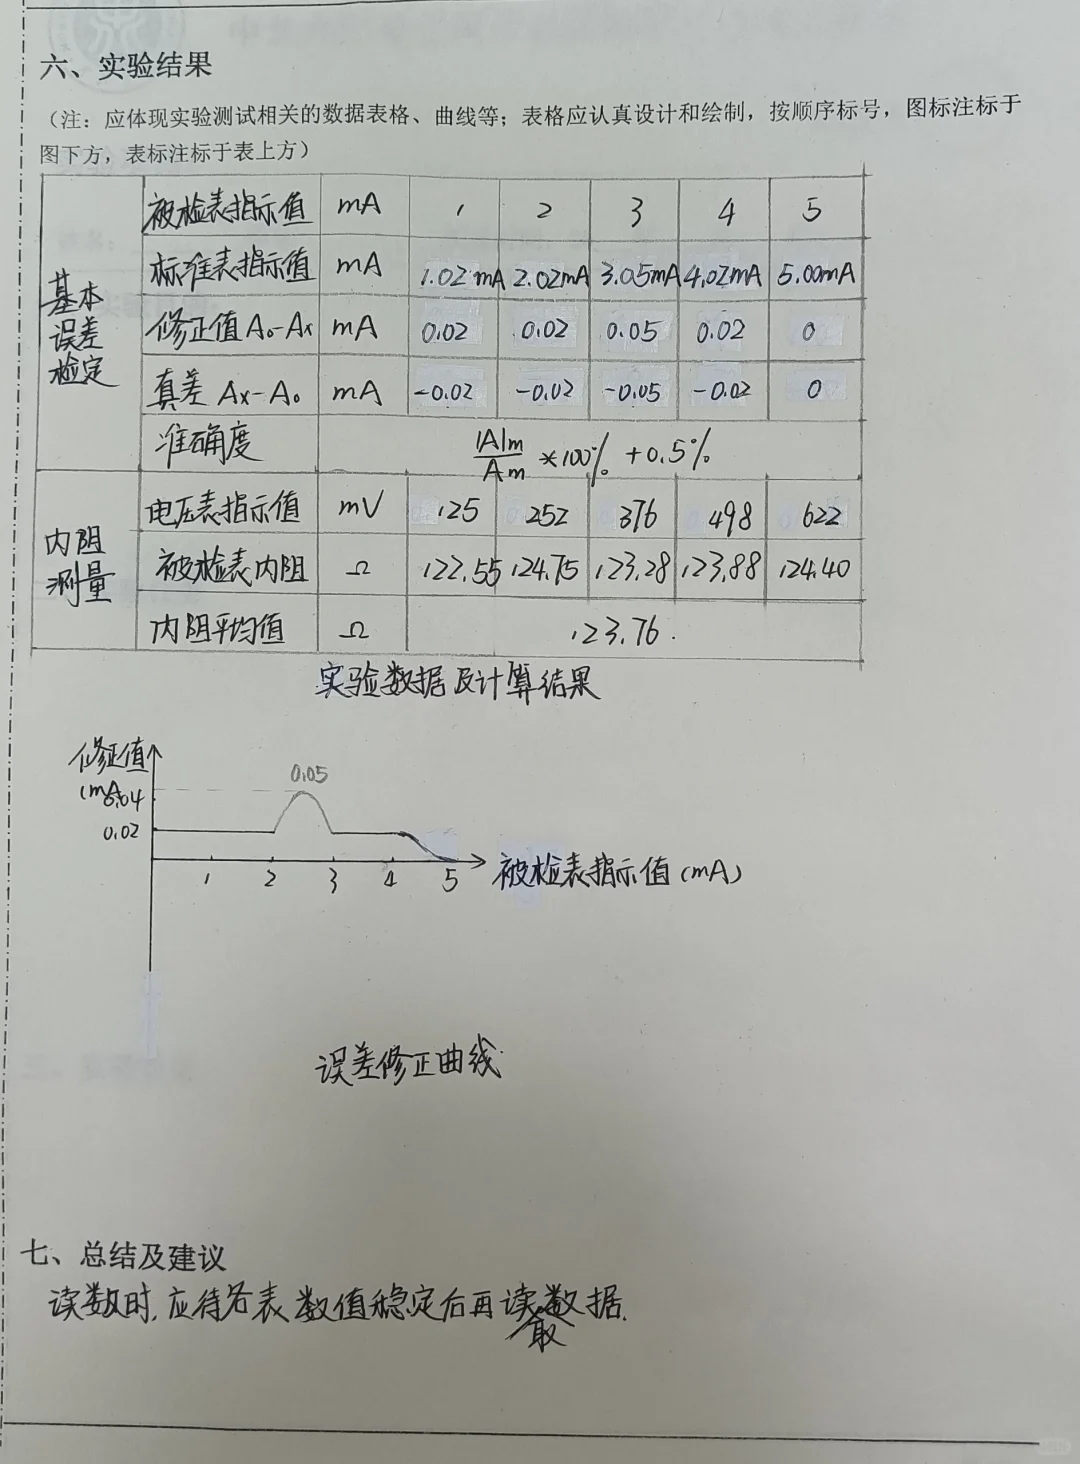 六、实验结果
（注：应体现实验测试相关的数据表格、曲线等；表格应认真设计和绘制，按顺序标号，图标注标于
图下方，表标注标于表上方）
基本误差检定 被检表指示值 mA 1 2 3 4 5
标准表指示值 mA 1.02mA 2.02mA 3.05mA 4.02mA 5.00mA
修正值 A₀-Ax mA 0.02 0.02 0.05 0.02 0
真差 Ax-A₀ mA -0.02 -0.02 -0.05 -0.02 0
准确度 |A|m/Am ×100% +0.5%
内阻测量 电压表指示值 mV 125 252 376 498 622
被检表内阻 Ω 122.55 124.75 123.28 123.88 124.40
内阻平均值 Ω 123.76.
实验数据及计算结果
修正值
(mA
0.05
0.04
0.02
1 2 3 4 5 被检表指示值(mA)
误差修正曲线
七、总结及建议
读数时,应待各表数值稳定后再读数据.
取